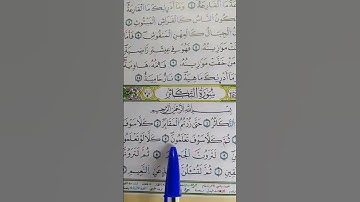 مَا ٱلْقَارِعَةُ ۝ وَمَآ أَدْرَىٰكَ مَا ٱلْقَارِعَةُ
كُونُ ٱلنَّاسُ كَٱلْفَرَاشِ ٱلْمَبْثُوثِ
ٱلْجِبَالُ كَٱلْعِهْنِ ٱلْمَنفُوشِ
فَهُوَ فِي عِيشَةٍ رَّاضِيَةٍ
مَنْ خَفَّتْ مَوَٰزِينُهُۥ ۝ فَأُمُّهُۥ هَاوِيَةٌ
وَمَآ أَدْرَىٰكَ مَا هِيَهْ ۝ نَارٌ حَامِيَةٌ
سُورَةُ التَّكَاثُرِ
بِسْمِ ٱللَّهِ ٱلرَّحْمَٰنِ ٱلرَّحِيمِ
ٱلتَّكَاثُرُ ۝ حَتَّىٰ زُرْتُمُ ٱلْمَقَابِرَ ۝ كَلَّا سَوْفَ
ثُمَّ كَلَّا سَوْفَ تَعْلَمُونَ ۝ كَلَّا لَوْ تَعْلَمُو
لَتَرَوُنَّ ٱلْجَحِيمَ ۝ ثُمَّ لَتَرَوُ
ثُمَّ لَتُسْـَٔلُنَّ عَنِ ٱلنَّعِيمِ